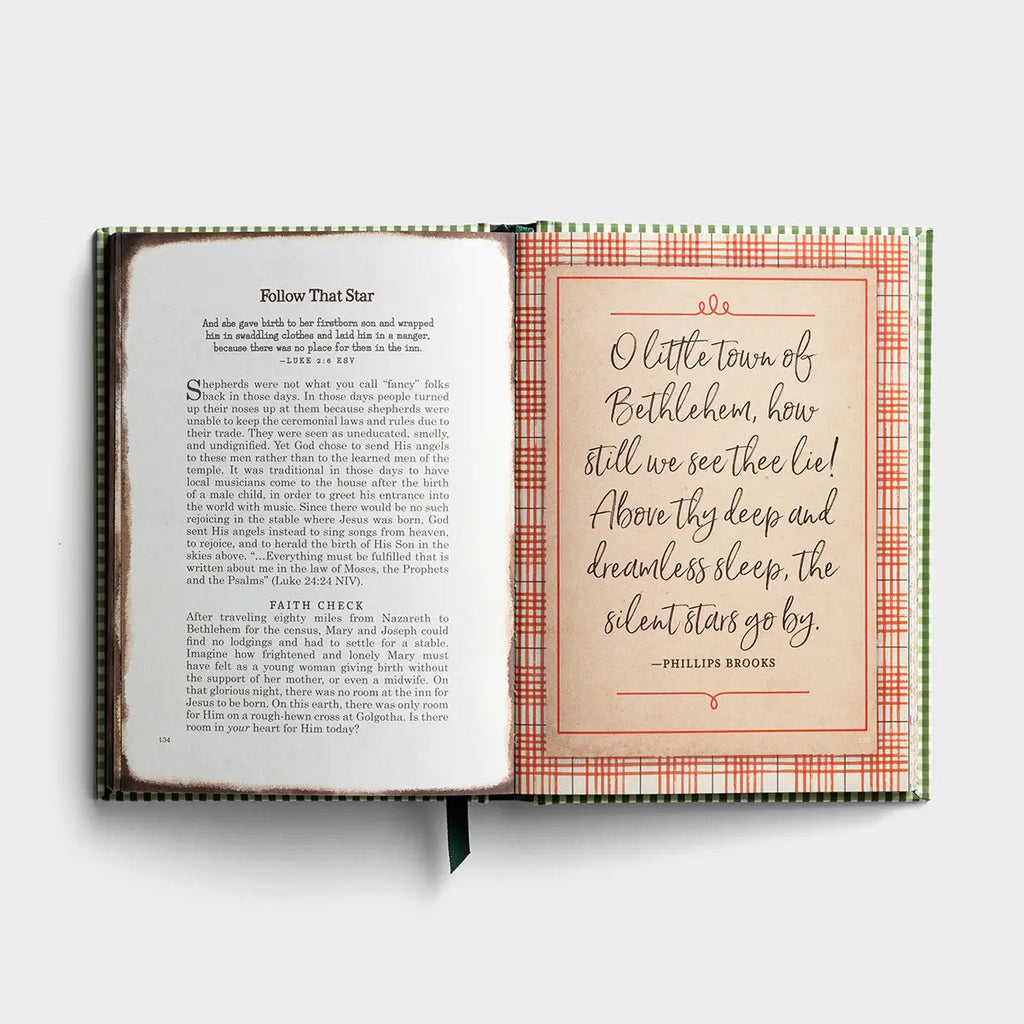 Follow That Star
And she gave birth to her firstborn son and wrapped
him in swaddling clothes and laid him in a manger,
because there was no place for them in the inn.
—LUKE 2:6 ESV
Shepherds were not what you call “fancy” folks
back in those days. In those days people turned
up their noses up at them because shepherds were
unable to keep the ceremonial laws and rules due to
their trade. They were seen as uneducated, smelly,
and undignified. Yet God chose to send His angels
to these men rather than to the learned men of the
temple. It was traditional in those days to have
local musicians come to the house after the birth
of a male child, in order to greet his entrance into
the world with music. Since there would be no such
rejoicing in the stable where Jesus was born, God
sent His angels instead to sing songs from heaven,
to rejoice, and to herald the birth of His Son in the
skies above. “...Everything must be fulfilled that is
written about me in the law of Moses, the Prophets
and the Psalms” (Luke 24:24 NIV).
FAITH CHECK
After traveling eighty miles from Nazareth to
Bethlehem for the census, Mary and Joseph could
find no lodgings and had to settle for a stable.
Imagine how frightened and lonely Mary must
have felt as a young woman giving birth without
the support of her mother, or even a midwife. On
that glorious night, there was no room at the inn for
Jesus to be born. On this earth, there was only room
for Him on a rough-hewn cross at Golgotha. Is there
room in your heart for Him today?
134
O little town of
Bethlehem, how
still we see thee lie!
Above thy deep and
dreamless sleep, the
silent stars go by.
—PHILLIPS BROOKS